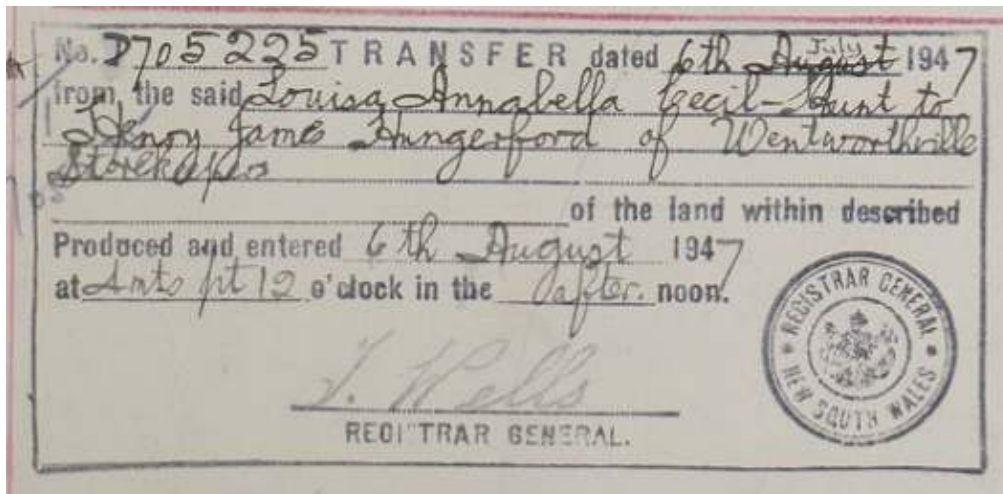 No. D705225 TRANSFER dated 6th August July 1947
from the said Louisa Annabella Cecil-Hunt to
Henry James Hungerford of Wentworthville
Storekeeper
of the land within described
Produced and entered 6th August 1947
at mts pt 12 o'clock in the after noon.
J. Wells
REGISTRAR GENERAL.
REGISTRAR GENERAL
NEW SOUTH WALES